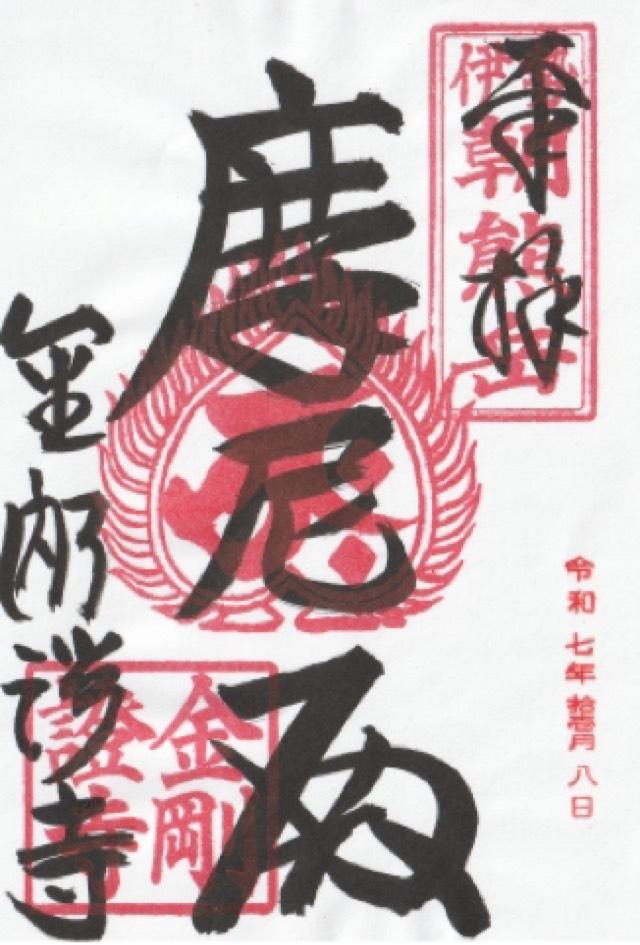 奉拝
伊勢朝熊岳
摩尼殿
金剛證寺
金剛
證寺
令和 七年 拾壱月 八日